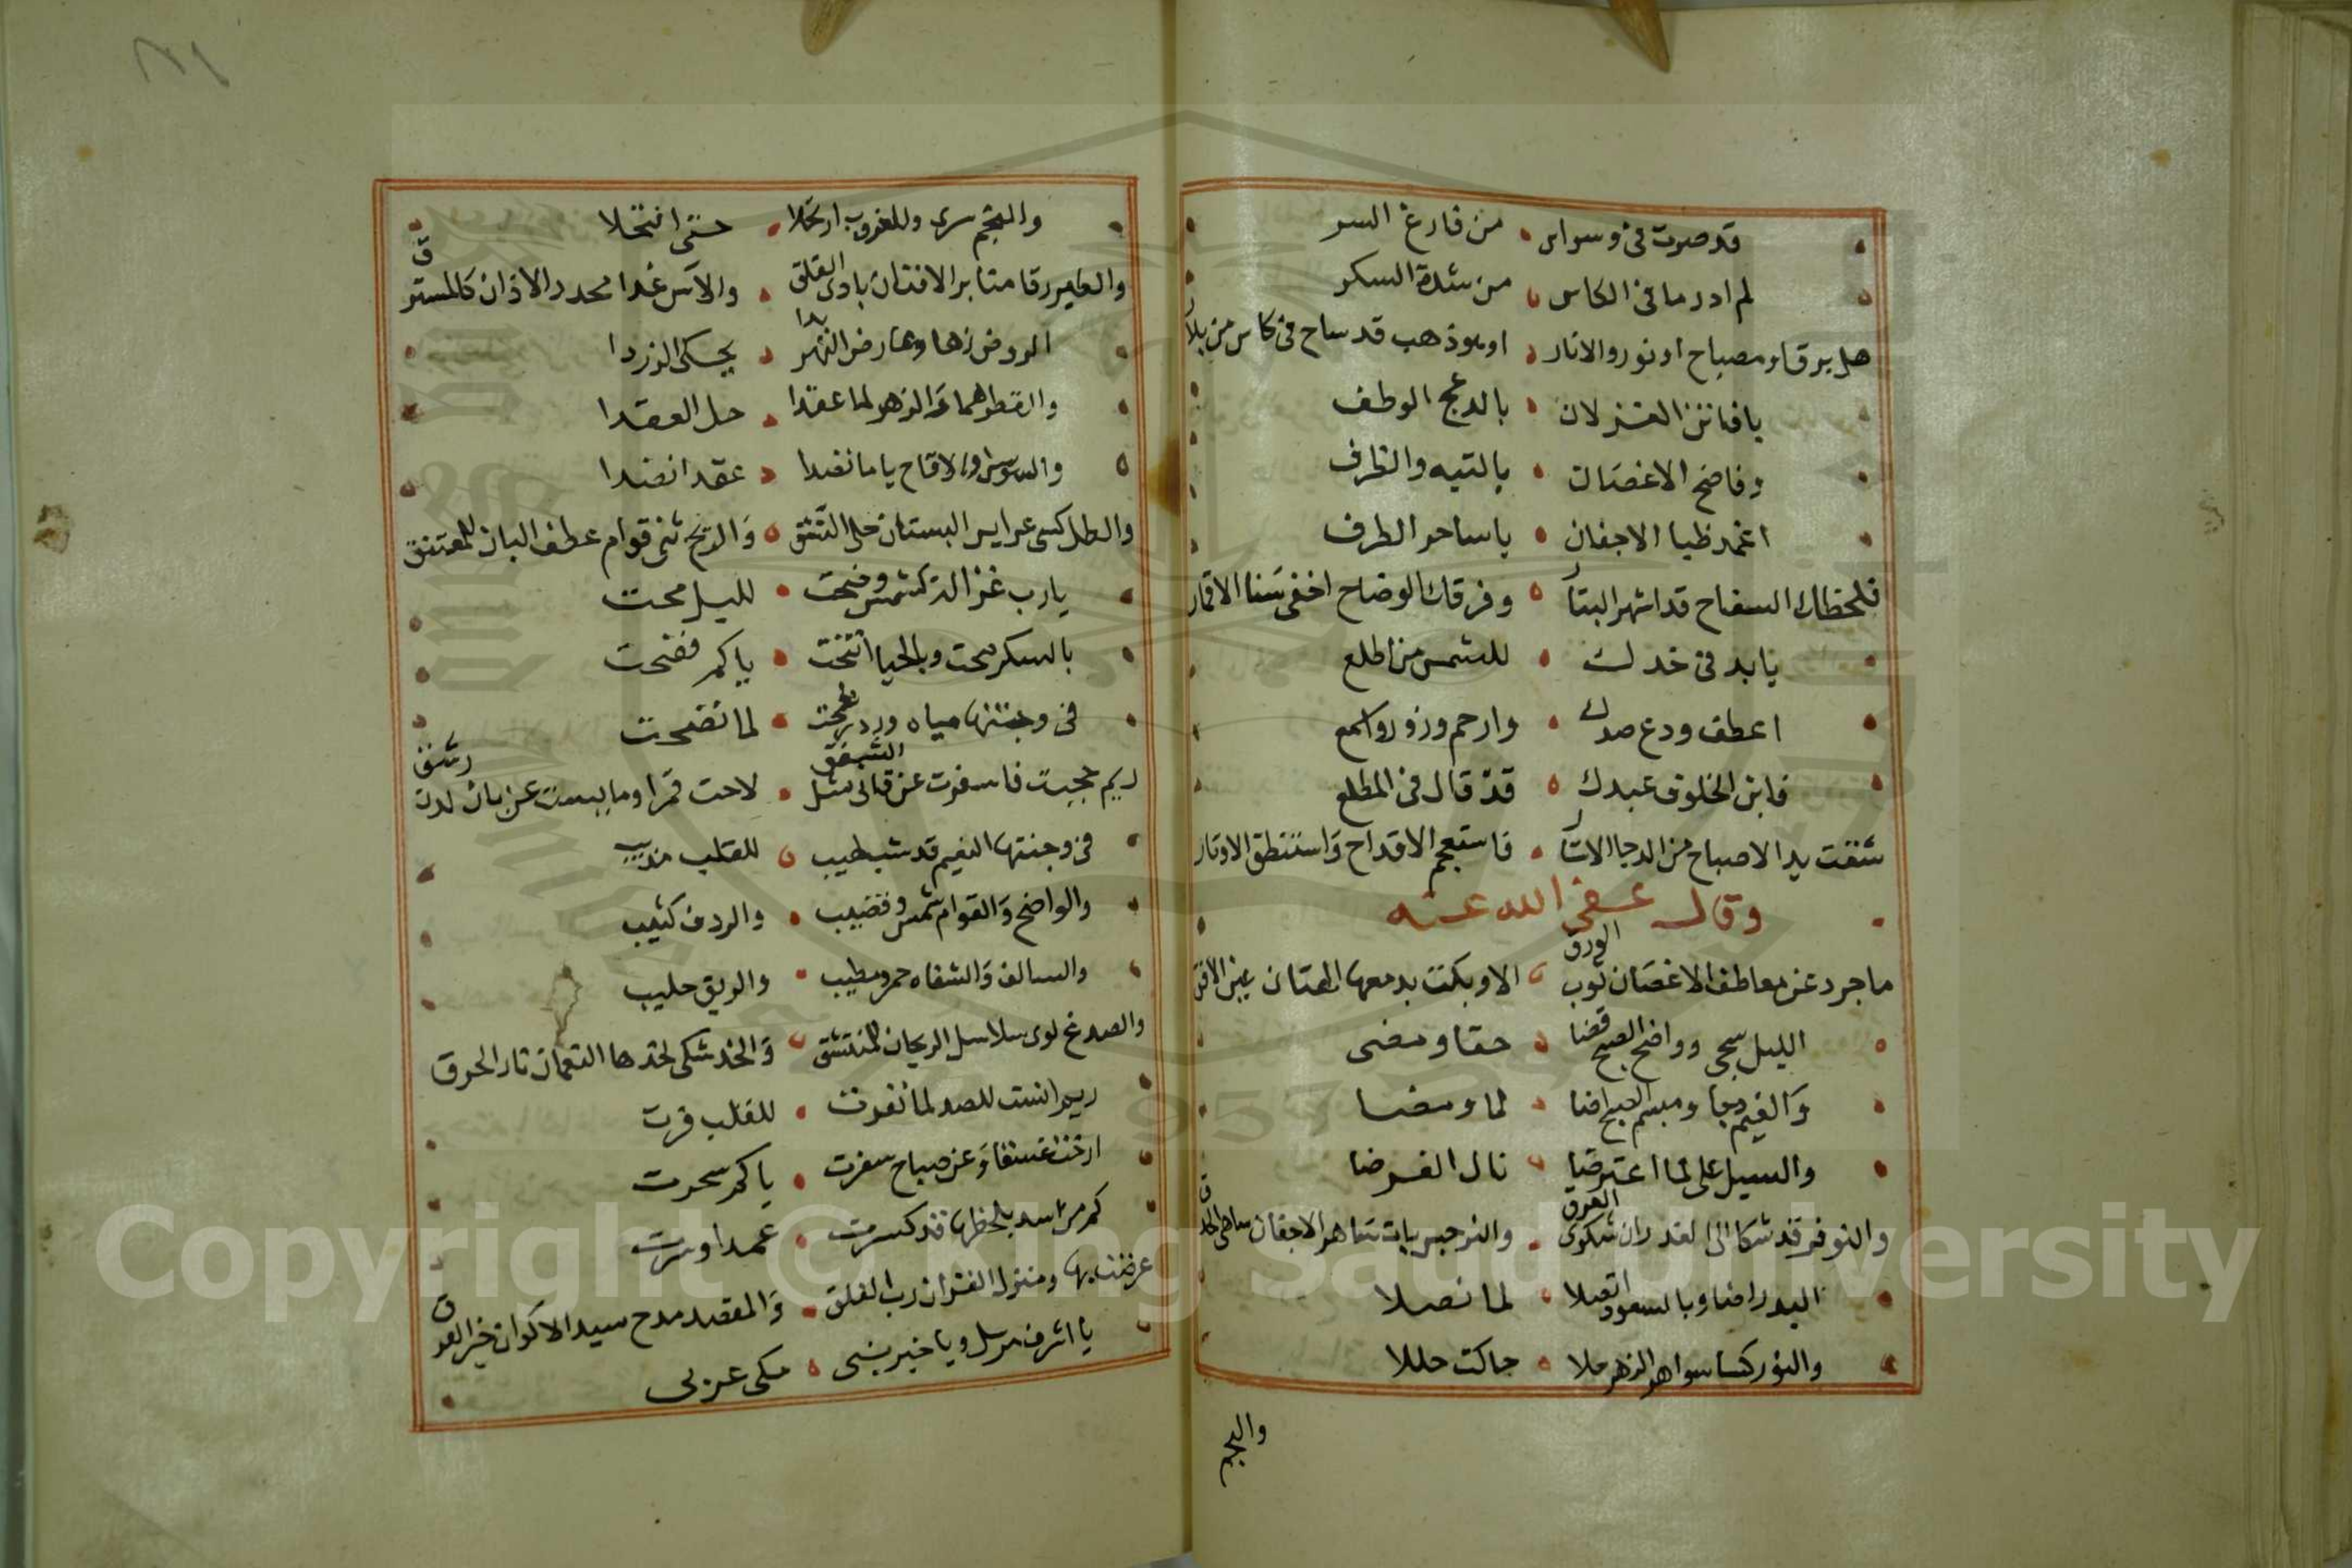 قد صرت فى وسواس من فارغ السر
لم ادر ما فى الكاس من شدة السكر
هل برق او مصباح او نور والانار او بوذهب قد ساح فى كاس من بلار
يا فاتن الغزلان بالدعج الوطف
وفاضح الاغصان بالتيه والظرف
اغمد ظبا الاجفان يا ساحر الطرف
فلحظك السفاح قد اشهر البتار وفرقك الوضاح اخفى سنا الاقمار
يا بد فى خدك للشمس من اطلع
اعطف ودع صدك وارحم وزور واسمع
فابن الخلوف عبدك قد قال فى المطلع
شقت يد الاصباح من الدجا الاستار فاستعجم الاقداح واستنطق الاوتار
وقال عفى الله عنه
ما جرد عن معاطف الاغصان ثوب الورق الا وبكت بدمعها الهتان عين الافق
الليل سجى وواضح الصبح قضا حقا ومضى
والغيم دجا ومبسم الصبح اضا لما ومضا
والسيل على لما اعترضا نال الغرضا
والنوفر قد شكا الى الغدران شكوى الغرق والنرجس بات ساهر الاجفان ساهى الحدق
البدر اضا وبالسعود اتصلا لما نصلا
والنور كسا سواهر الزهر ملا حاكت حللا
والنجم
والنجم سرى وللغروب ارتحلا حتى افتحلا
والطير رقا منابر الافنان بادى القلق والآس غدا محدد الاذان كالمسترق
الروض زها وعارض النهر بدا يحكى الزردا
والقطر هما والزهر لما عقدا حل العقدا
والسوسن والاقاح يا ما نضدا عقدا نضدا
والطل كسى عرايس البستان حلى النسق والريح ثنى قوام عطف البان للمعتنق
يا رب غزالة كشمس وضحت لليل محت
بالسكر صحت وبالحيا اتشحت يا كم فضحت
فى وجنتها مياه ورد رشحت لما نضحت
ريم حجبت فاسفرت عن قانى مثل الشفق لاحت قمرا وما بست عن بان لدن رشق
فى وجنتها النعيم قد شب لهيب للقلب مذيب
والواضح والقوام شمس وقضيب والردف كثيب
والسالف والشفاه خمر ومطيب والريق حليب
والصدغ لوى سلاسل الريحان للمنتشق والخد شكى لخدها النعمان نار الحرق
ريم انست للصد لما نفرت للقلب فرت
ارخت غسقا وعن صباح سفرت يا كم سحرت
كم من اسد بلحظها قد كسرت عمدا وسرت
عرضت بها ومنزل القران رب الفلق والمقصد مدح سيد الاكوان خير الفرق
يا اشرف مرسل ويا خير نبى مكى عربى
Copyright © King Saud University
1957